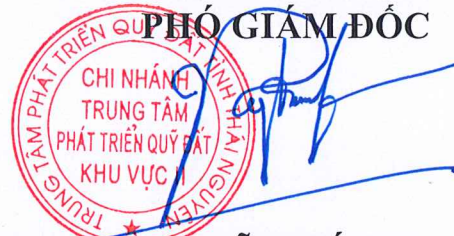 PHÓ GIÁM ĐỐC
TRUNG TÂM PHÁT TRIỂN QUỸ ĐẤT TỈNH THÁI NGUYÊN
CHI NHÁNH
TRUNG TÂM
PHÁT TRIỂN QUỸ ĐẤT
KHU VỰC II